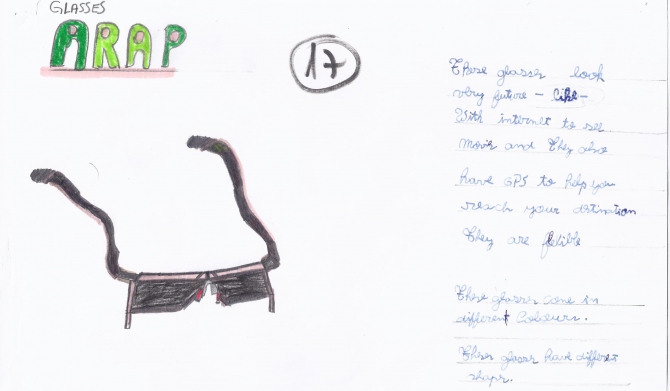 GLASSES
ARAP
17
These glasses look
very future - like -
With internet to see
movis and they also
have GPS to help you
reach your distination
They are flexible
These glasses come in
different colours.
These glasses have different
shape.